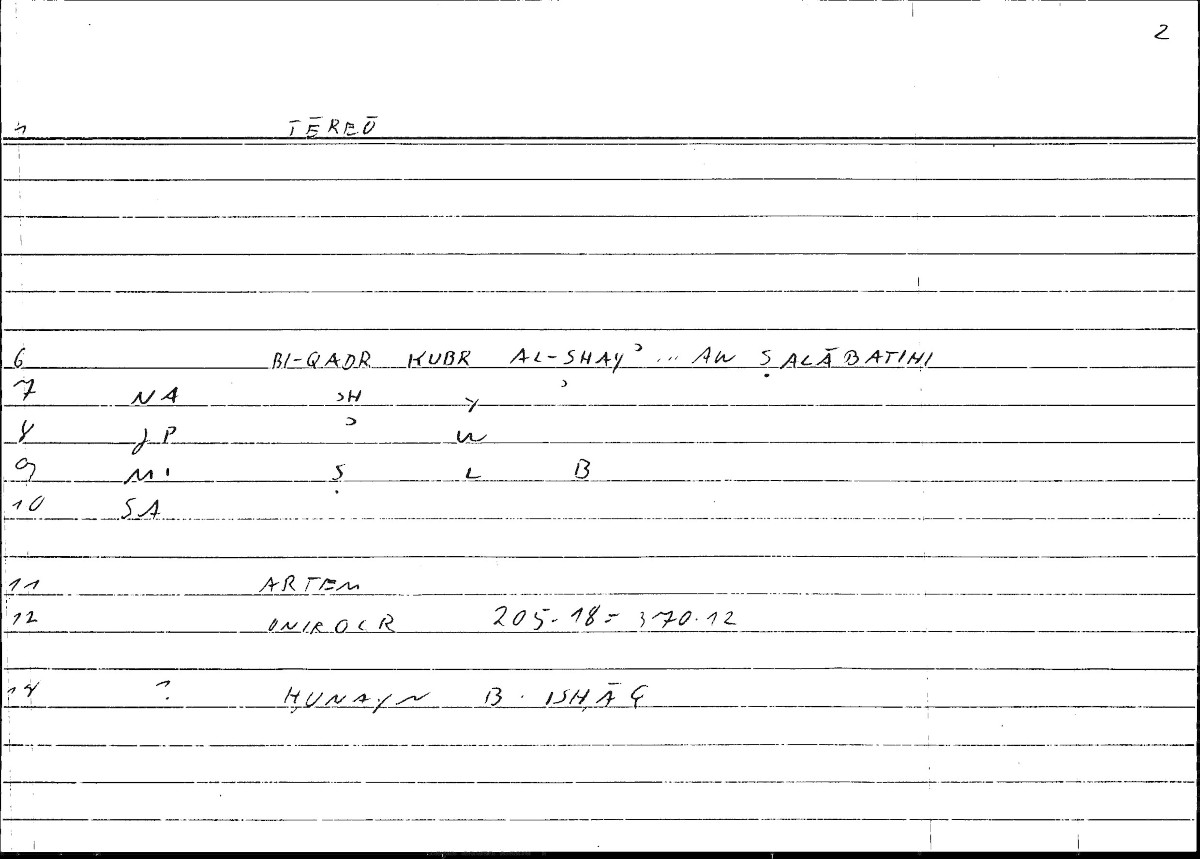 2
1 TĒREŌ
6 BI-QADR KUBR AL-SHAYʾ ... AW ṢALĀBATIHI
7 NA ʾH Y ʾ
8 JP ʾ W
9 MI Ṣ L B
10 SA
11 ARTEM
12 ONIROCR 205.18 = 370.12
14 ? ḤUNAYN B. ISḤĀQ